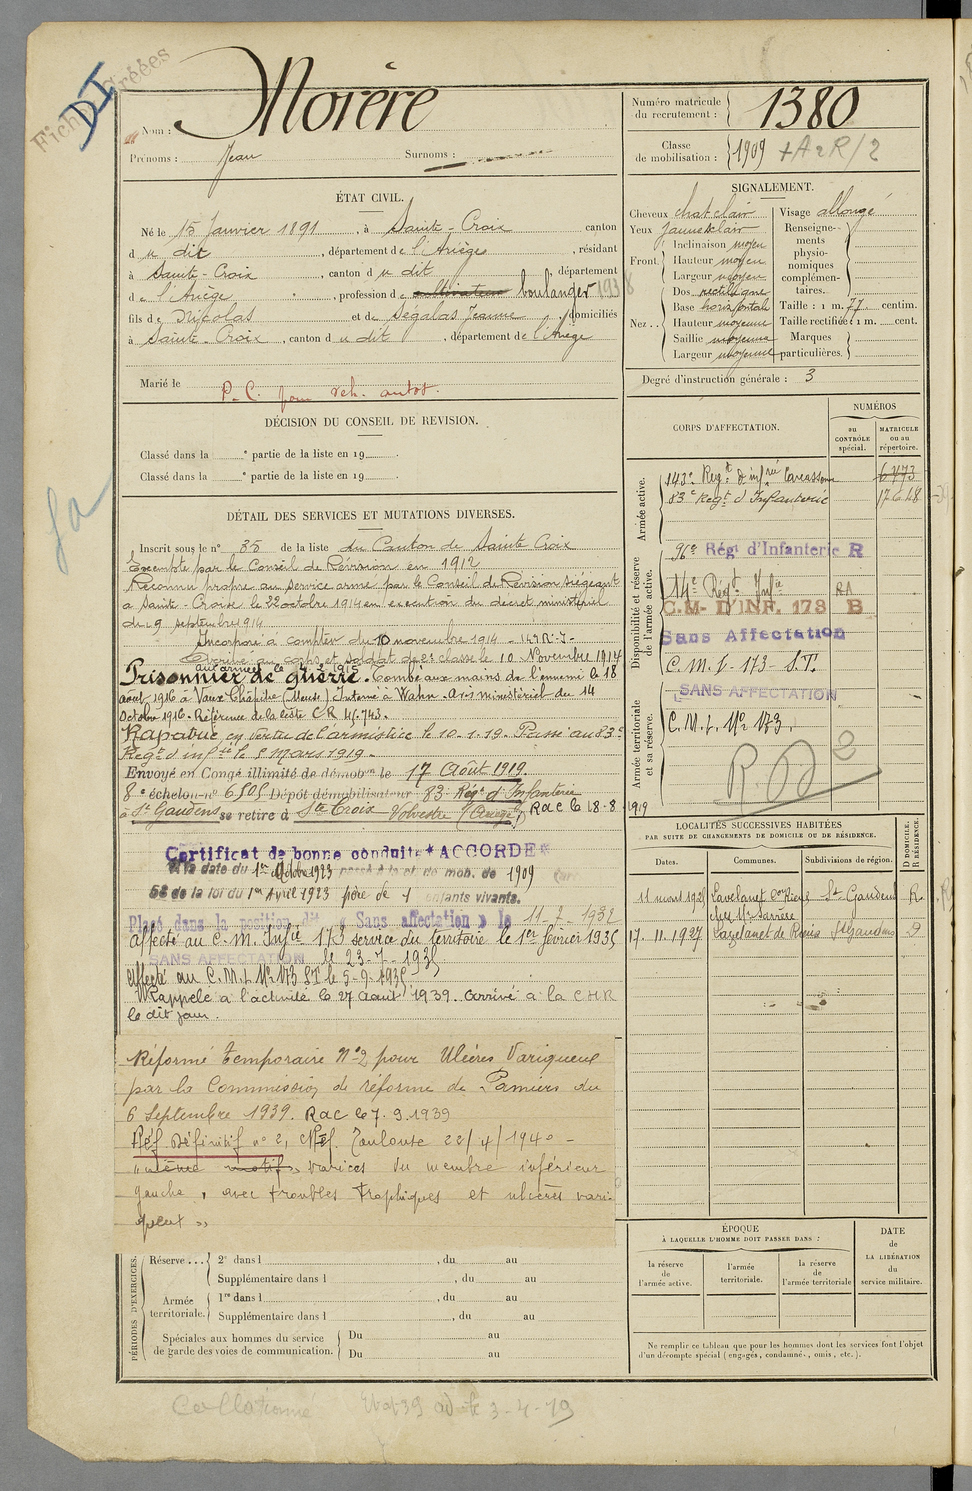 Fiches
DI
Nom : Morère
Prénoms : Jean Surnoms :
Numéro matricule du recrutement : 1380
Classe de mobilisation : 1909 + A2R/2
ÉTAT CIVIL.
Né le 15 Janvier 1891, à Sainte-Croix canton
d u dit, département de l'Ariège, résidant
à Sainte-Croix, canton d u dit, département
de l'Ariège, profession de cultivateur boulanger 1938
fils de Nicolas et de Ségalas Jeanne, domiciliés
à Sainte-Croix, canton d u dit, département de l'Ariège
Marié le
P.C. pour
DÉCISION DU CONSEIL DE REVISION.
Classé dans la e partie de la liste en 19 .
Classé dans la e partie de la liste en 19 .
DÉTAIL DES SERVICES ET MUTATIONS DIVERSES.
Inscrit sous le n° 35 de la liste du Canton de Sainte Croix
Exempté par le Conseil de Révision en 1912
Reconnu propre au service armé par le Conseil de Révision siégeant
à Sainte-Croix le 22 octobre 1914 en exécution du décret ministériel
du 9 septembre 1914
Incorporé à compter du 10 novembre 1914
Arrivé au corps et soldat de 2e classe le 10 Novembre 1914
aux armées le 4-2-1915
Prisonnier de guerre. Tombé aux mains de l'ennemi le 18
août 1916 à Vaux Chapitre (Meuse) Interné à Wahn. Avis ministériel du 14
Octobre 1916. Référence de la liste C R 45.745.
Rapatrié en vertu de l'armistice le 10.1.19. Passé au 83e
Régt d'inf ie le 5 Mars 1919.
Envoyé en Congé illimité de démobon le 17 Août 1919.
8e échelon n° 6505 Dépôt démobilisateur 83e Régt d'Infanterie
à St Gaudens se retire à Ste Croix Volvestre (Ariège) RaC le 28-8-1919
Certificat de bonne conduite "ACCORDÉ"
A la date du 1er Octobre 1923 passé à la cl. de mob. de 1909
58 de la loi du 1er Avril 1923 père de 1 enfants vivants.
Placé dans la position dite « Sans affectation » le 11-7-1932
affecté au C.M. Infie 173 service du territoire le 1er février 1935
SANS AFFECTATION le 23-7-1935
affecté au C.M.I. N° 173 ST le 5-9-1935
Rappelé à l'activité le 27 août 1939. Arrivé à la CHR
le dit jour.
Réformé temporaire N°2 pour Ulcères Variqueux
par la Commission de réforme de Pamiers du
6 Septembre 1939. RaC le 7.9.1939
Réf Définitif n° 2, Toulouse 22/4/1940 -
"même motif" varices du membre inférieur
gauche, avec troubles trophiques et ulcères vari-
queux »
PÉRIODES D'EXERCICES.
Réserve ... 2e dans l , du au
Supplémentaire dans l , du au
Armée territoriale. 1re dans l , du au
Supplémentaire dans l , du au
Spéciales aux hommes du service de garde des voies de communication. Du au
Du au
SIGNALEMENT.
Cheveux chat clair
Yeux jaune clair
Front. Inclinaison moyen
Hauteur moyen
Largeur moyen
Nez.. Dos rectiligne
Base horizontale
Hauteur moyenne
Saillie moyenne
Largeur moyenne
Visage allongé
Renseignements physionomiques complémentaires.
Taille : 1 m. 77 centim.
Taille rectifiée : 1 m. cent.
Marques particulières.
Degré d'instruction générale : 3
CORPS D'AFFECTATION.
NUMÉROS
au CONTRÔLE spécial.
MATRICULE ou au répertoire.
Armée active.
143e Régt d'infrie Carcassonne 6473
83e Régt d'Infanterie 17618
Disponibilité et réserve de l'armée active.
96e Régt d'Infanterie R
14e Régt Infie RA
C.M- D'INF. 173 B
Sans Affectation
C.M.I-173-S.T.
Armée territoriale et sa réserve.
SANS AFFECTATION
C.M.I. N° 173.
R.D 2
LOCALITÉS SUCCESSIVES HABITÉES
PAR SUITE DE CHANGEMENTS DE DOMICILE OU DE RÉSIDENCE.
Dates. Communes. Subdivisions de région. D DOMICILE. R RÉSIDENCE.
11 mars 1925 Lavelanet St Gaudens R
chez Mr
17.11.1927 Lavelanet de St Gaudens D
ÉPOQUE
À LAQUELLE L'HOMME DOIT PASSER DANS :
la réserve de l'armée active.
l'armée territoriale.
la réserve de l'armée territoriale
DATE de LA LIBÉRATION du service militaire.
Ne remplir ce tableau que pour les hommes dont les services font l'objet
d'un décompte spécial (engagés, condamnés, omis, etc.).
Collationné
3-4-19